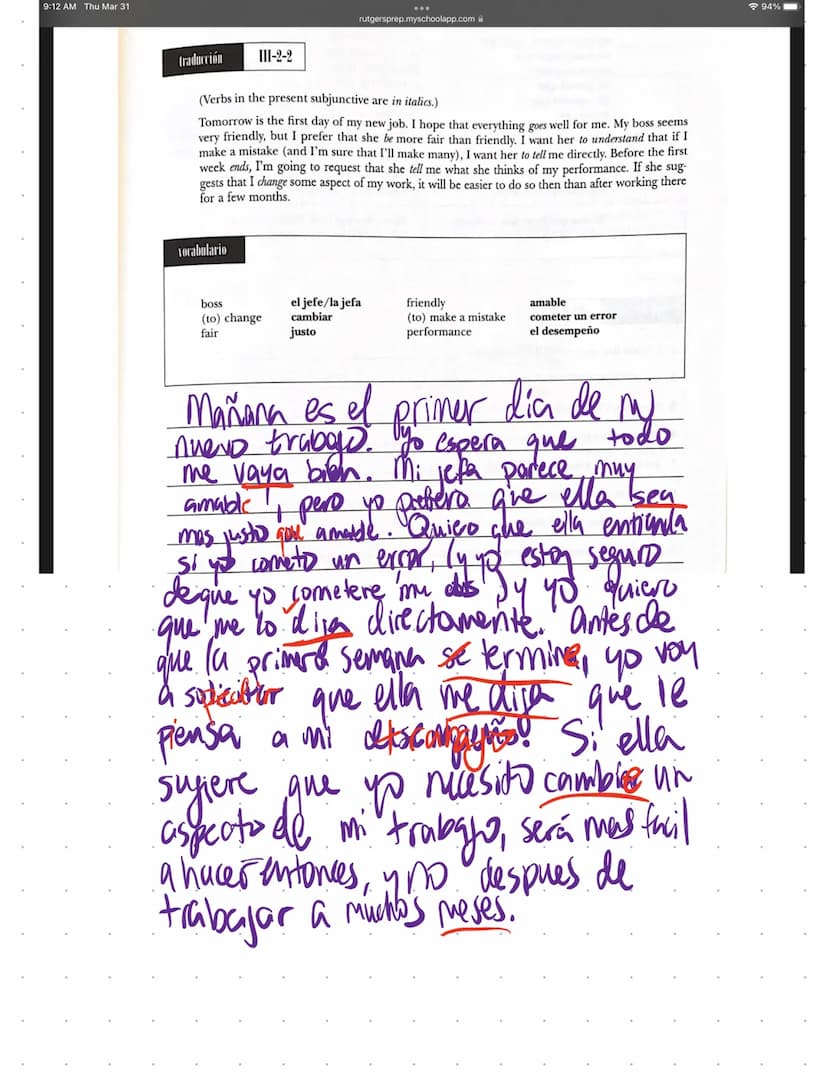 9:12 AM Thu Mar 31
94%
rutgersprep.myschoolapp.com
traducción III-2-2
(Verbs in the present subjunctive are in italics.)
Tomorrow is the first day of my new job. I hope that everything goes well for me. My boss seems
very friendly, but I prefer that she be more fair than friendly. I want her to understand that if I
make a mistake (and I'm sure that I'll make many), I want her to tell me directly. Before the first
week ends, I'm going to request that she tell me what she thinks of my performance. If she sug-
gests that I change some aspect of my work, it will be easier to do so then than after working there
for a few months.
vocabulario
boss el jefe/la jefa friendly amable
(to) change cambiar (to) make a mistake cometer un error
fair justo performance el desempeño
Mañana es el primer día de mi
nuevo trabajo. Yo espera que todo
me vaya bien. Mi jefa parece muy
amable, pero yo prefiera que ella sea
mas justo que amable. Quiero que ella entienda
si yo cometo un error, (y yo estoy seguro
de que yo cometere) y yo quiero
que me lo diga directamente. Antes de
que la primera semana se termine, yo voy
a solicitar que ella me diga que le
piensa a mi Si ella
sugiere que yo necesito cambie un
aspecto de mi trabajo, será mas facil
a hacer entonces, y no despues de
trabajar a muchos meses.